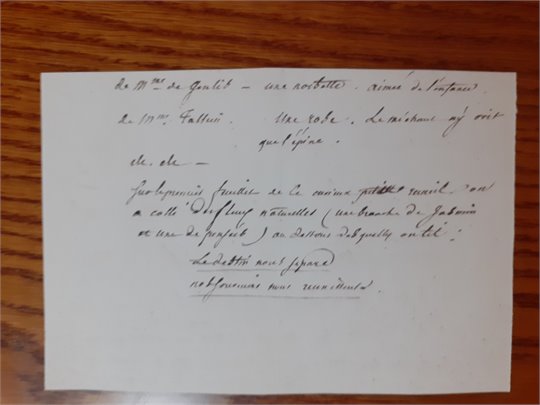 de Mme de Genlis – une noisette. aimée de l'enfance.
de Mme Tallien. Une rose. Le méchant n'y voit
que l'épine.
etc. etc –
Sur le premier feuillet de ce curieux recueil on
a collé des fleurs naturelles (une branche de Jasmin
et une de pensée) au dessous desquelles on lit :
Le destin nous sépare
nos souvenirs nous réunissent.